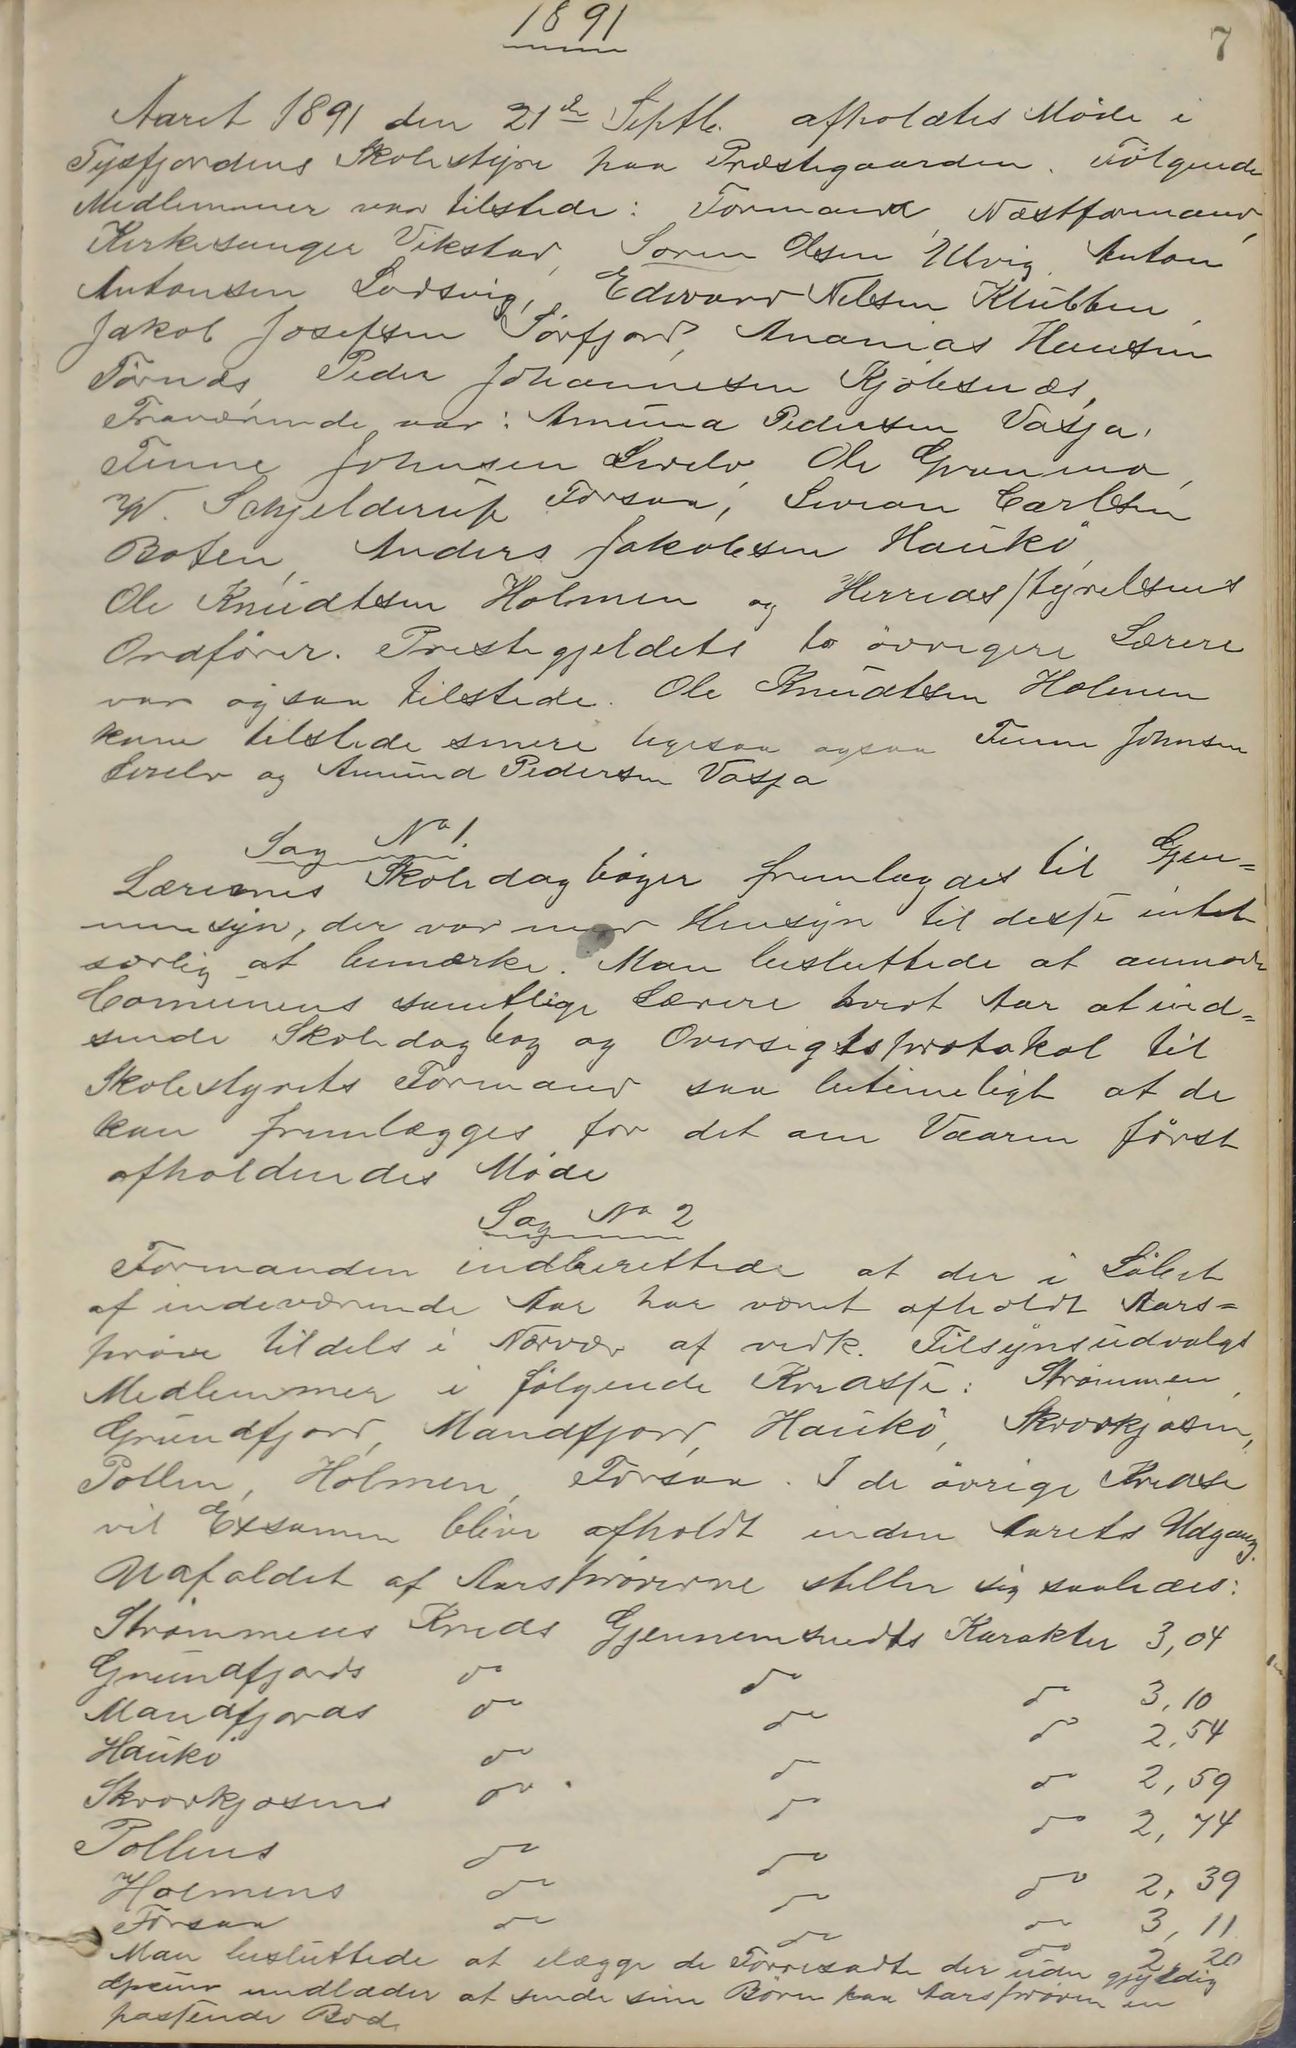 1891
7
Aaret 1891 den 21de Septb. afholdtes Møde i
Tysfjordens Skolestyre paa Præstegaarden. Følgende
Medlemmer var tilstede: Formand, Næstformand,
Kirkesanger Vikstad, Søren Olsen Ulvig, Anton
Antonsen Losvig, Edvard Nilsen Klubben,
Jakob Josefsen Sørfjord, Ananias Hansen
Tørnæs, Peder Johannesen Kjøbsnæs,
Fraværende var: Amund Pedersen Vasja,
Finne Johnsen Livelv, Ole Grunmo,
W. Schjelderup Forsaa, Sivran Carlsen
Boten, Anders Jakobsen Haukö,
Ole Knudtsen Holmen og Herredsstyrelsens
Ordfører. Prestegjeldets to øvrigere Lærere
var ogsaa tilstede. Ole Knudtsen Holmen
kom tilstede senere ligesaa ogsaa Finne Johnsen
Livelv og Amund Pedersen Vasja
Sag No 1.
Lærernes Skoledagbøger fremlagdes til Gjen=
nemsyn, der var med Hensyn til disse intet
særlig at bemærke. Man besluttede at anmode
Comunens samtlige Lærere hvert Aar at ind=
sende Skoledagbog og Oversigtsprotokol til
Skolestyrets Formand saa betimeligt at de
kan fremlægges for det om Vaaren først
afholdendes Møde
Sag No 2
Formanden indberettede at der i Løbet
af indeværende Aar har været afholdt Aars=
prøve tildels i Nærvær af vedk. Tilsynsudvalgs
Medlemmer i følgende Kredse: Strømmen,
Grundfjord, Mandfjord, Haukö, Skrovkjosen,
Pollen, Holmen, Forsaa. I de øvrige Kredse
vil Examen blive afholdt inden Aarets Udgang.
Udfaldet af Aarsprøverne stiller sig saaledes:
Strømmens Kreds Gjennemsnedts Karakter 3,04
Grundfjords do do do 3,10
Mandfjords do do do 2,54
Haukö do do do 2,59
Skrovkjosens do do do 2,74
Pollens do do do 2,39
Holmens do do do 3,11
Forsaa do do do 2,20
Man besluttede at ilægge de Forresadte der uden gyldig
undlader at sende sine Børn paa Aarsprøven en
passende Bod.